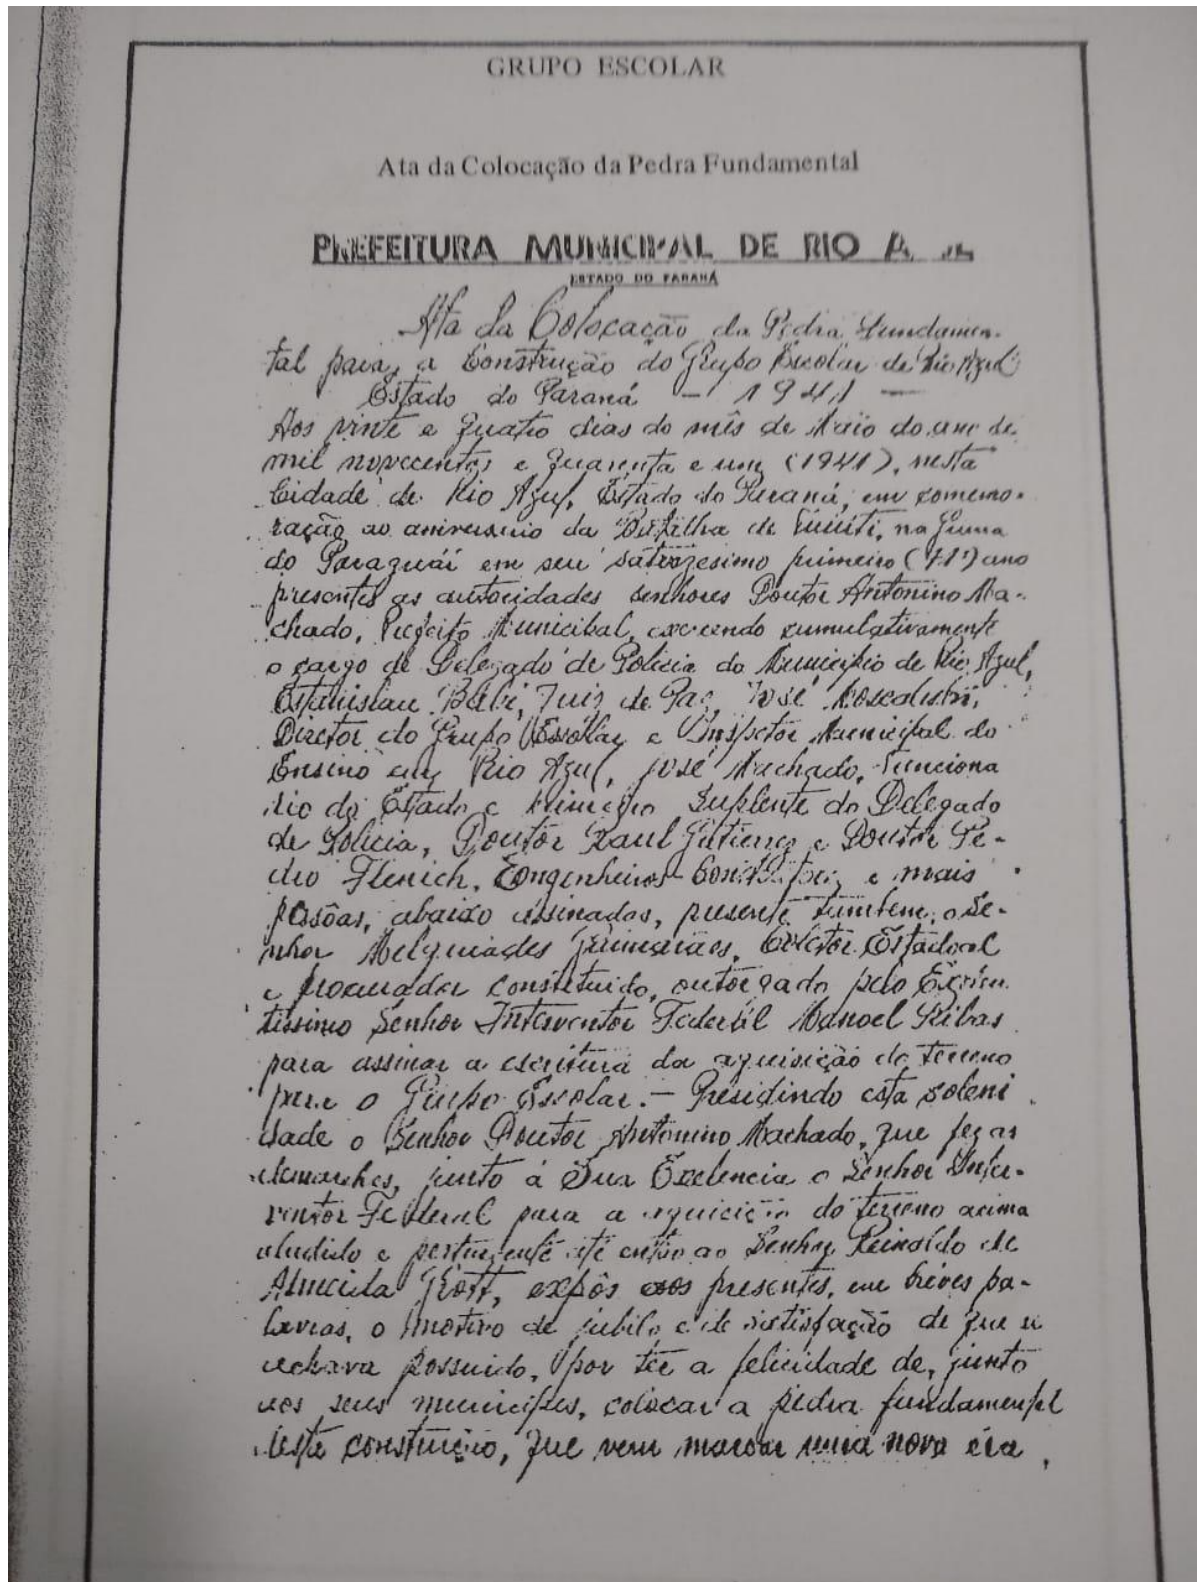 GRUPO ESCOLAR
Ata da Colocação da Pedra Fundamental
PREFEITURA MUNICIPAL DE RIO A
ESTADO DO PARANÁ
Ata da Colocação da Pedra Fundamen-
tal para a Construção do Grupo Escolar de Rio Azul
Estado do Paraná - 1941 -
Aos vinte e quatro dias do mês de Maio do ano de
mil novecentos e quarenta e um (1941), nesta
Cidade de Rio Azul, Estado do Paraná, em comemo-
ração ao aniversario da Batalha de na Guerra
do Paraguái em seu primeiro ano
presentes as autoridades senhores Doutor Antonino Ma-
chado, Prefeito Municipal, exercendo cumulativamente
o cargo de Delegado de Policia do Municipio de Rio Azul,
Estanislau Juiz de Paz, José
Diretor do Grupo Escolar e Inspetor Municipal do
Ensino em Rio Azul, José Machado, Funciona
rio do Estado e Primeiro Suplente do Delegado
de Policia, Doutor Raul Gutierrez e Doutor Pe-
dro Engenheiros e mais
pessôas, abaixo assinadas, presente tambem, o Se-
nhor Melquiades Guimarães, Coletor Estadoal
e procurador constituido, outorgado pelo
tissimo Senhor Interventor Federal Manoel Ribas
para assinar a escritura da aquisição do terreno
para o Grupo Escolar. - Presidindo esta soleni
dade o Senhor Doutor Antonino Machado, que fez as
demarches, junto á Sua Exelencia o Senhor Inter-
ventor Federal para a aquicição do terreno acima
aludido e pertencente até então ao Senhor Reinoldo de
Almeida expôs aos presentes, em bréves pa-
lavras, o motivo de jubilo e de satisfação de que se
achava possuido, por ter a felicidade de, junto
aos seus municipes, colocar a pedra fundamental
desta construção, que vem marcar uma nova éra